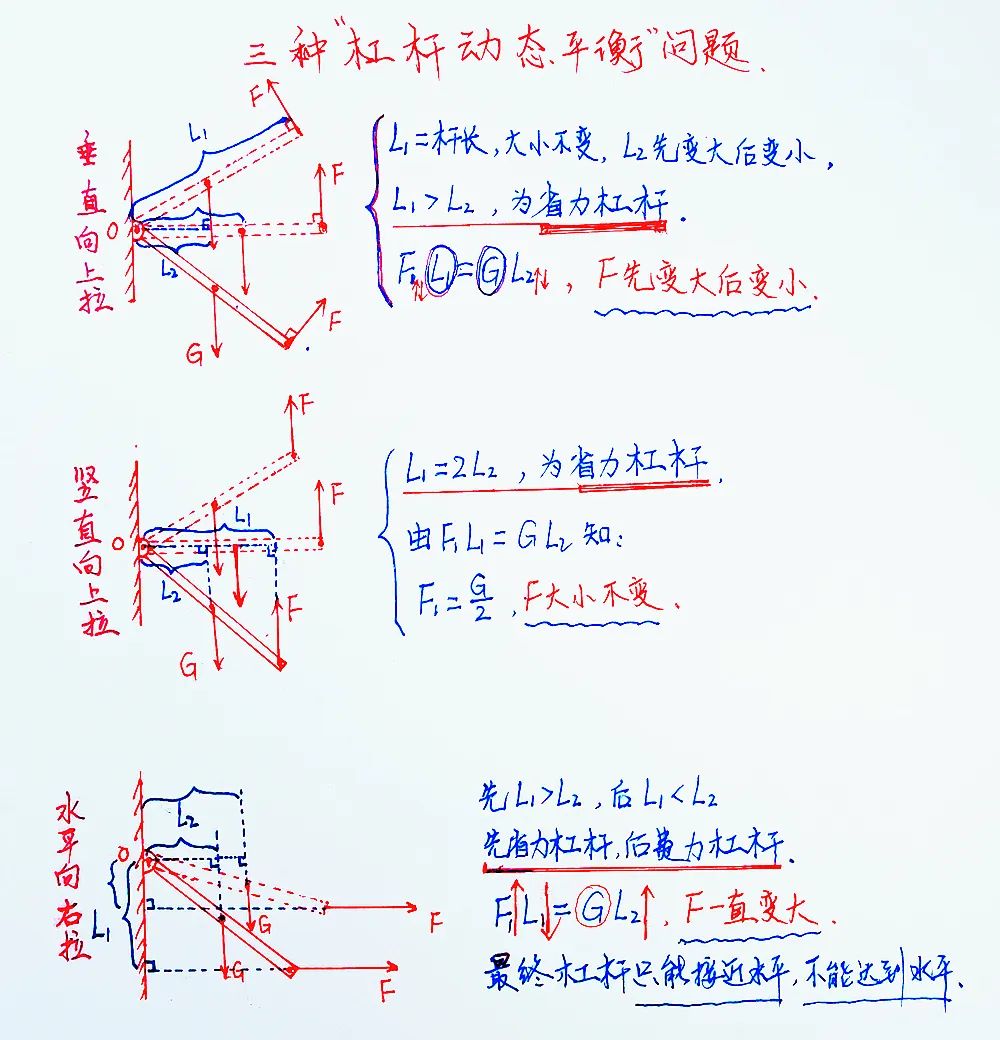 三种“杠杆动态平衡”问题.
垂直向上拉
L₁
F
F
O
L₂
G
F
L₁=杆长,大小不变,L₂先变大后变小,
L₁>L₂,为省力杠杆.
F₁↑↓L₁=GL₂↑↓,F先变大后变小.
竖直向上拉
F
F
O
L₁
L₂
F
G
L₁=2L₂,为省力杠杆.
由F₁L₁=GL₂知:
F₁=G/2,F大小不变.
水平向右拉
L₂
O
L₁
G
F
G
F
先L₁>L₂,后L₁<L₂
先省力杠杆,后费力杠杆.
F₁↑L₁↓=GL₂↑,F一直变大.
最终杠杆只能接近水平,不能达到水平.